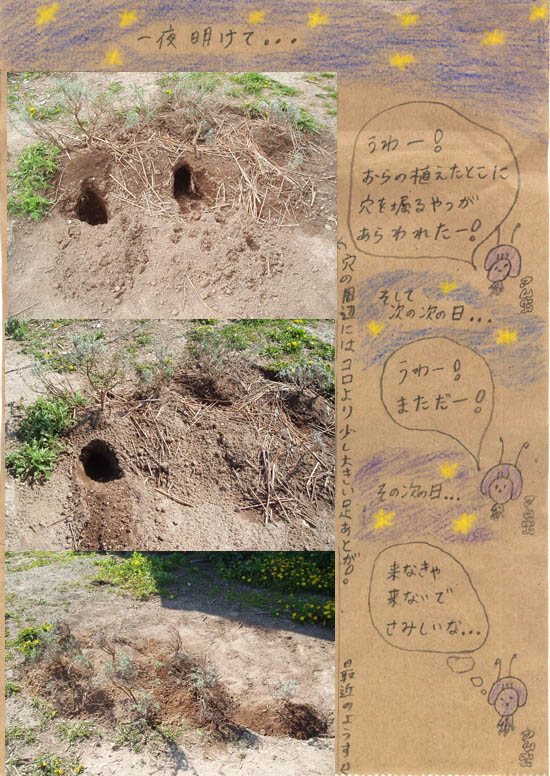 一夜明けて...
うわー!
あらの植えたとこに
穴を掘るやつが
あらわれたー!
そして
次の次の日...
穴の周辺にはコロより少し大きい足あとが。
うわー!
まただー!
その次の日...
来なきゃ
来ないで
さみしいな...
最近のようす